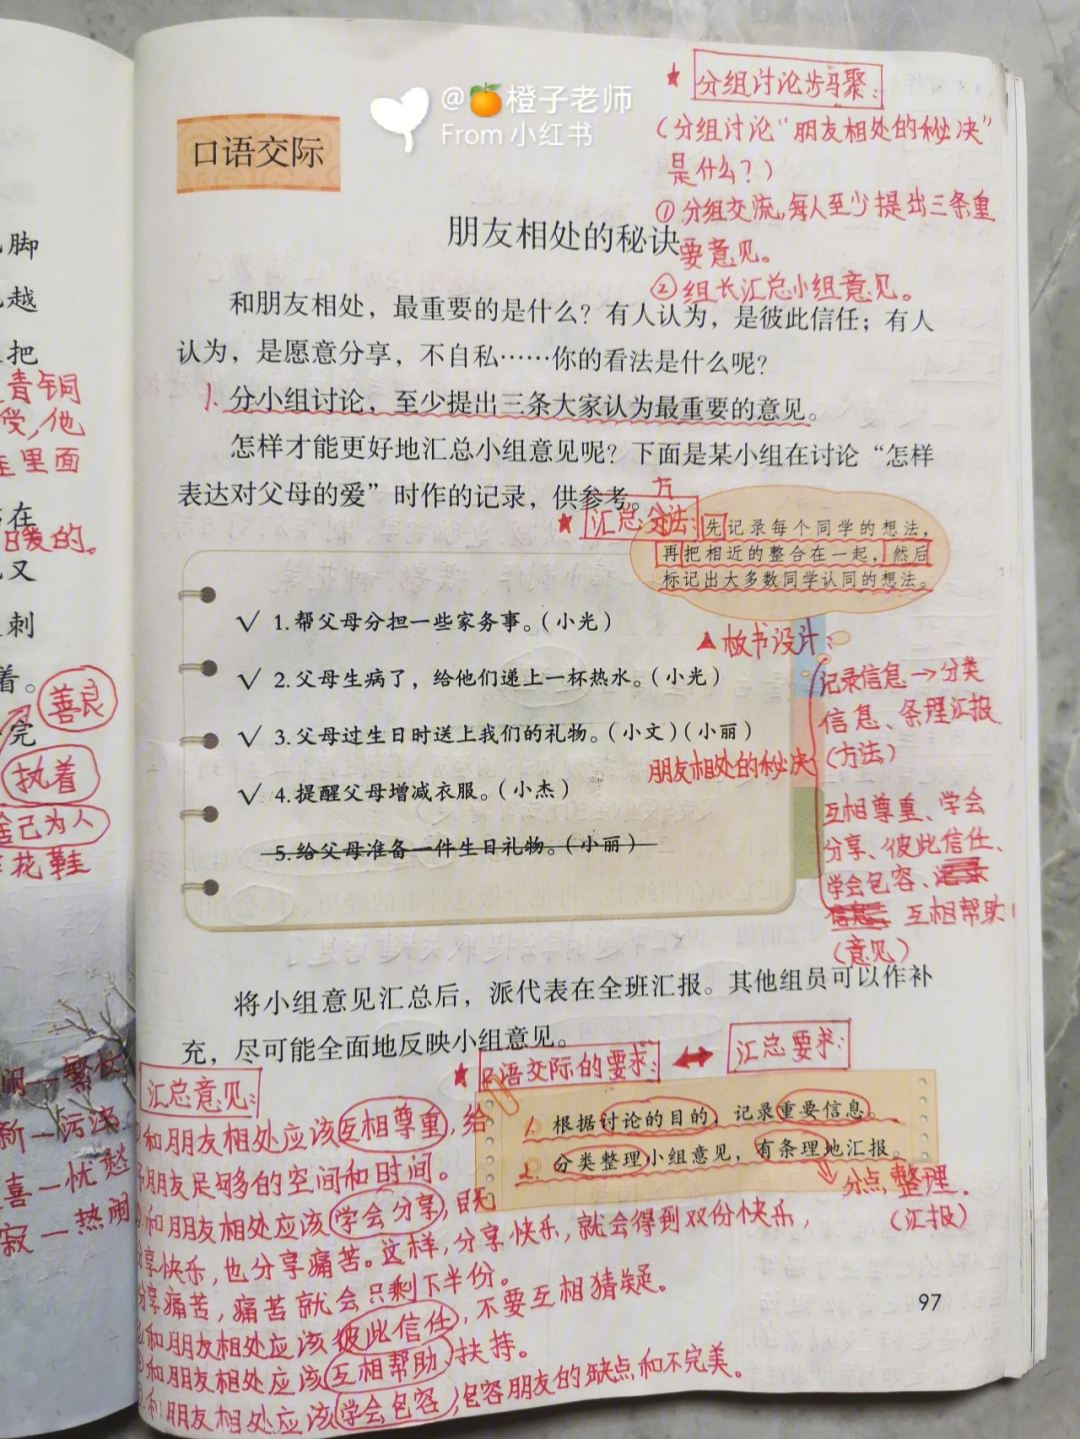 @🍊橙子老师
From 小红书
口语交际
朋友相处的秘诀
★ 分组讨论步骤：
（分组讨论“朋友相处的秘诀”
是什么？）
①分组交流，每人至少提出三条重
要意见。
②组长汇总小组意见。
和朋友相处，最重要的是什么？有人认为，是彼此信任；有人
认为，是愿意分享，不自私……你的看法是什么呢？
1.分小组讨论，至少提出三条大家认为最重要的意见。
怎样才能更好地汇总小组意见呢？下面是某小组在讨论“怎样
表达对父母的爱”时作的记录，供参考。
★ 汇总方法：
先记录每个同学的想法，
再把相近的整合在一起，然后
标记出大多数同学认同的想法。
✓ 1.帮父母分担一些家务事。（小光）
✓ 2.父母生病了，给他们递上一杯热水。（小光）
✓ 3.父母过生日时送上我们的礼物。（小文）（小丽）
✓ 4.提醒父母增减衣服。（小杰）
5.给父母准备一件生日礼物。（小丽）
▲板书设计：
朋友相处的秘诀
记录信息→分类
信息、条理汇报
（方法）
互相尊重、学会
分享、彼此信任、
学会包容、
互相帮助
（意见）
将小组意见汇总后，派代表在全班汇报。其他组员可以作补
充，尽可能全面地反映小组意见。
★ 口语交际的要求： ↔ 汇总要求：
1. 根据讨论的目的，记录重要信息。
2. 分类整理小组意见，有条理地汇报。
分点，整理。
（汇报）
汇总意见：
和朋友相处应该互相尊重，给
朋友足够的空间和时间。
和朋友相处应该学会分享，
享快乐，也分享痛苦。这样，分享快乐，就会得到双份快乐，
分享痛苦，痛苦就会只剩下半份。
和朋友相处应该彼此信任，不要互相猜疑。
和朋友相处应该互相帮助，扶持。
和朋友相处应该学会包容，包容朋友的缺点和不完美。
97
脚
越
把
青铜
受，他
里面
在
暖的。
又
刺
着。
善良
完
执着
舍己为人
花鞋
闹—繁忙
新—污浊
喜—忧愁
寂—热闹